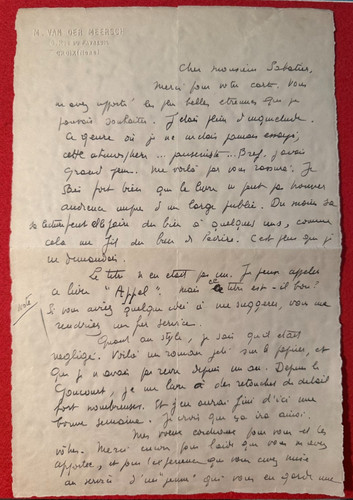 M. VAN DER MEERSCH
Cher Monsieur Sabatier,
Merci pour votre carte. Vous
m'avez apporté les plus belles étrennes que je
pouvais souhaiter. J'étais plein d'inquiétude.
Ce genre où je ne m'étais jamais essayé,
cette atmosphère... Bref, j'avais
grand peur. Me voilà par vous rassuré. Je
sais fort bien que le livre ne peut pas trouver
audience auprès d'un large public. Du moins sa
lecture peut-elle faire du bien à quelques uns, comme
cela me fit du bien de l'écrire. C'est plus que je
ne demandais.
Le titre n'en était pas un. Je pense appeler
ce livre "Appel". Mais ce titre est-il bon?
Si vous aviez quelque idée à me suggérer, vous me
rendriez un fier service.
Quant au style, je sais qu'il était
négligé. Voilà un roman jeté sur le papier, et
que je n'avais pas revu depuis un an. Depuis le
Goncourt, je me livre à des retouches de détail
fort nombreuses. Et j'en aurai fini d'ici une
bonne semaine. Je crois que ça ira ainsi.
Mes voeux cordiaux pour vous et les
vôtres. Merci encore pour la joie que vous m'avez
apportée, et pour l'expérience que vous avez mise
au service d'un "jeune" qui vous en garde une